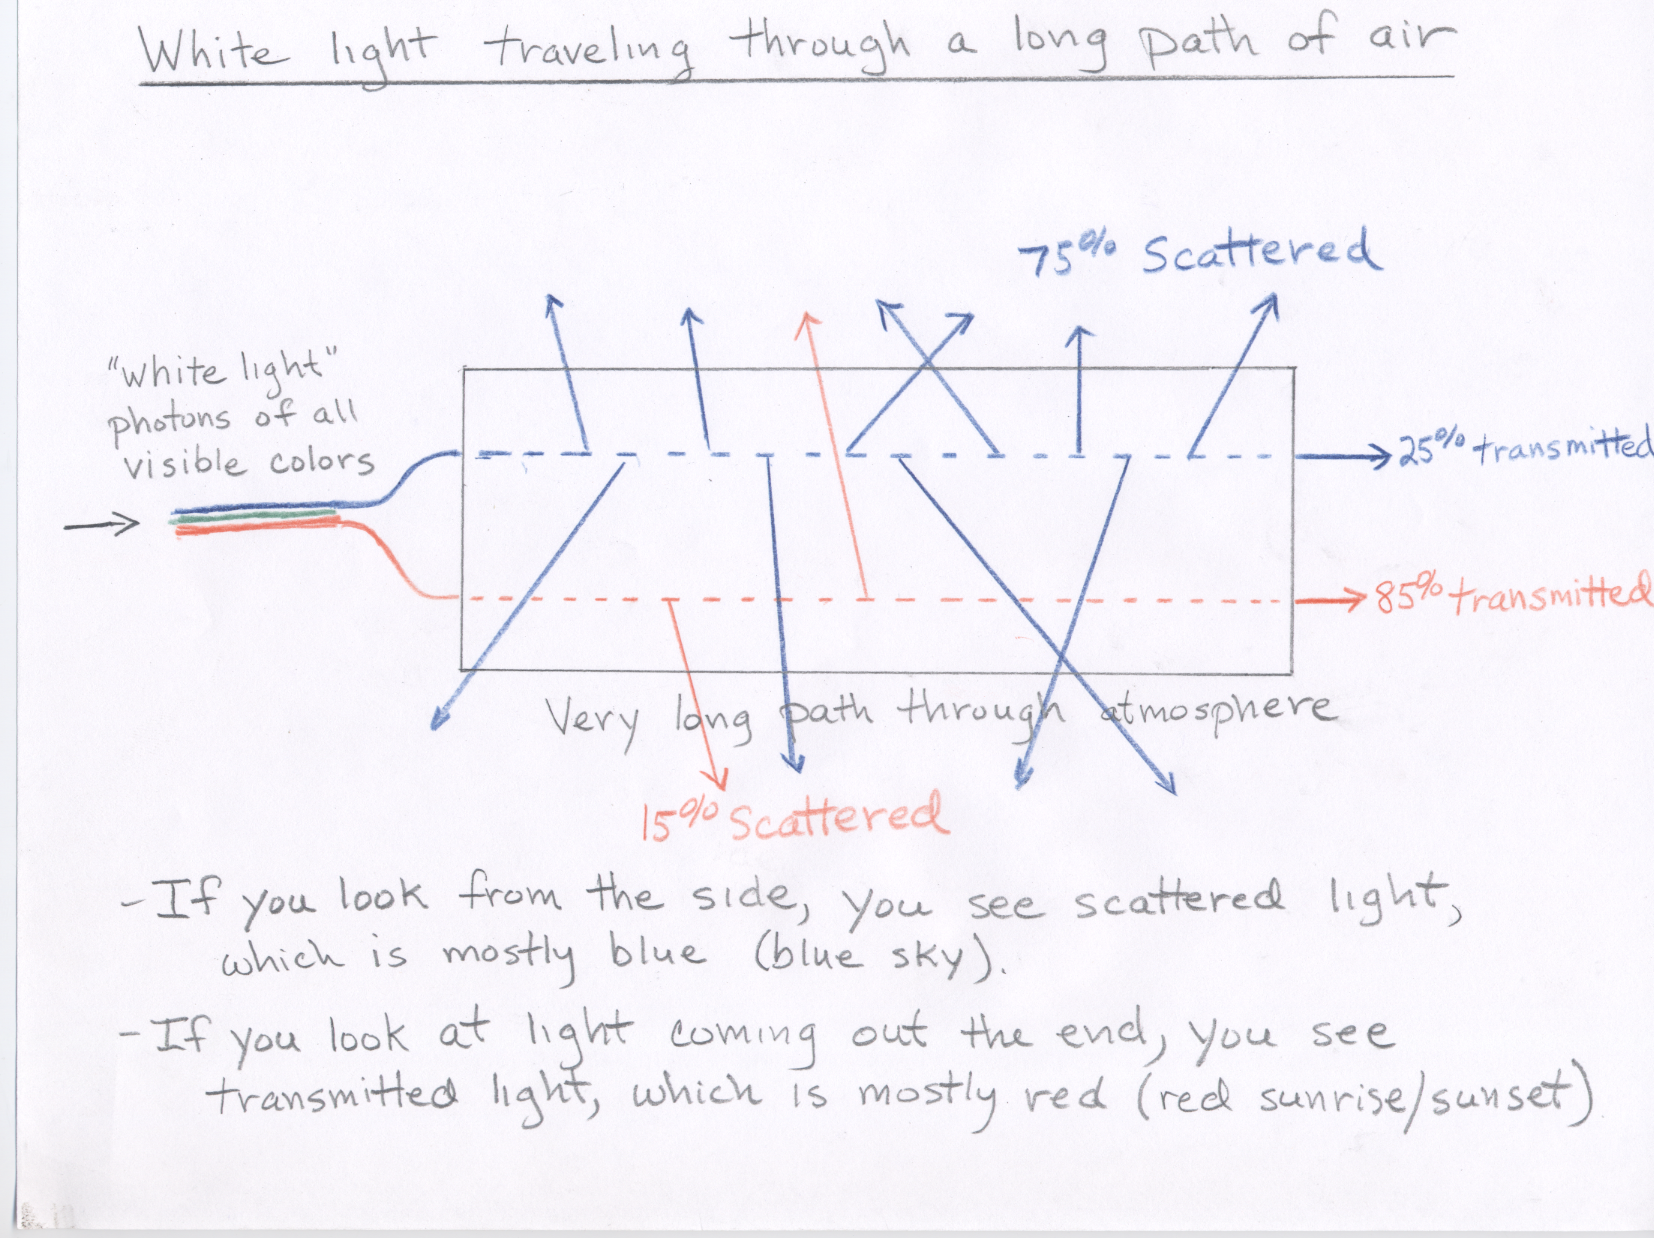 White light traveling through a long path of air
75% Scattered
"white light"
photons of all
visible colors
25% transmitted
85% transmitted
Very long path through atmosphere
15% Scattered
- If you look from the side, you see scattered light,
which is mostly blue (blue sky).
- If you look at light coming out the end, you see
transmitted light, which is mostly red (red sunrise/sunset)